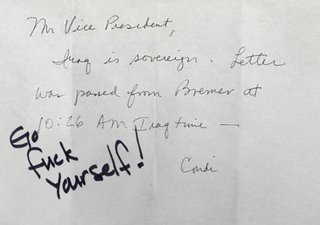 Mr. Vice President,
Iraq is sovereign. Letter
was passed from Bremer at
10:26 AM Iraq time —
Condi
Go
fuck
yourself!